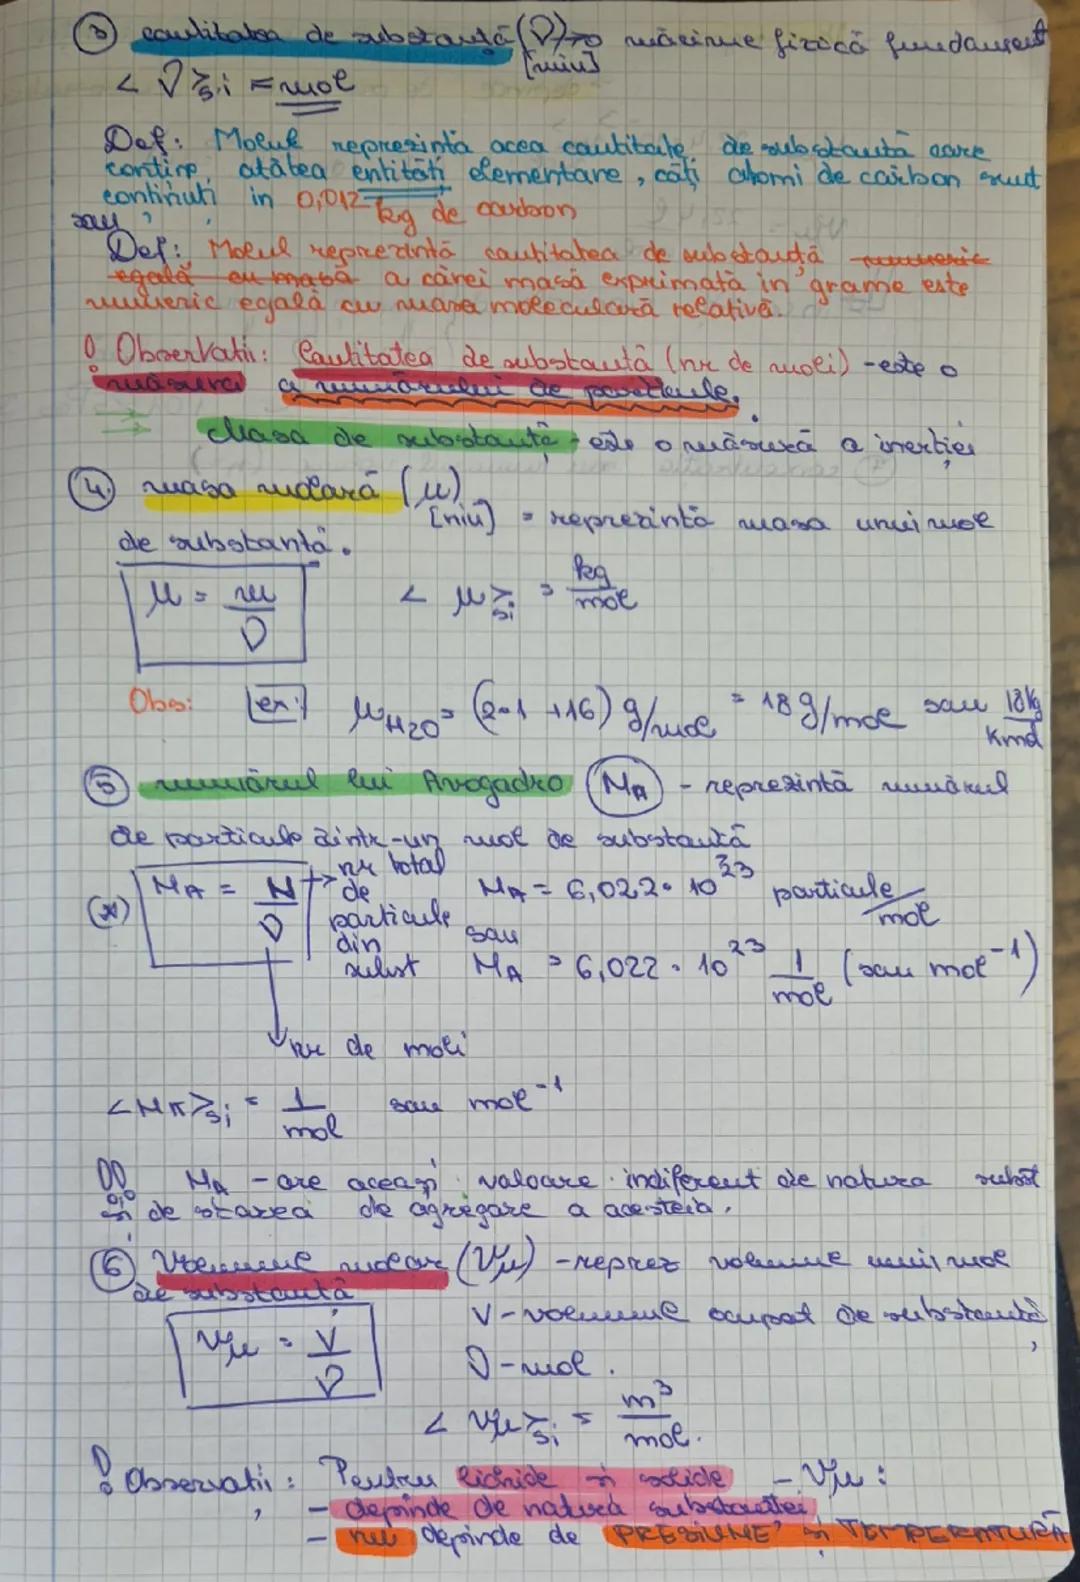 ③ cantitatea de substanță (ν) → mărime fizică fundament
[miu]
< ν >S.i = mol
Def: Molul reprezintă acea cantitate de substanță care
conține atâtea entități elementare, câți atomi de carbon sunt
conținuți in 0,012 kg de carbon
sau
Def: Molul reprezintă cantitatea de substanță numeric
egală cu masa a cărei masă exprimată in grame este
numeric egală cu masa moleculară relativă.
! Observații: Cantitatea de substanță (nr de moli) - este o
măsură a numărului de particule.
⇒ Masa de substanță - este o măsură a inerției
④ masa molară (μ)
[niu] = reprezintă masa unui mol
de substanță.
μ = m/ν < μ >Si = kg/mol
Obs: ex: μH2O = (2·1 +16) g/mol = 18 g/mol sau 18 kg/Kmol
⑤ numărul lui Avogadro (NA) - reprezintă numărul
de particule dintr-un mol de substanță
(*) NA = N/ν → nr total de particule din subst NA = 6,022 · 10^23 particule/mol
sau
NA = 6,022 · 10^23 1/mol (sau mol^-1)
nr de moli
<NA>Si = 1/mol sau mol^-1
!! NA - are aceași valoare indiferent de natura subst
și de starea de agregare a acesteia.
⑥ Volumul molar (Vμ) - reprez volumul unui mol
de substanță
Vμ = V/ν V - volumul ocupat de substanță
ν - mol.
< Vμ >Si = m^3/mol.
! Observații: Pentru lichide și solide - Vμ:
- depinde de natura substanței
- nu depinde de PRESIUNE și TEMPERATURĂ